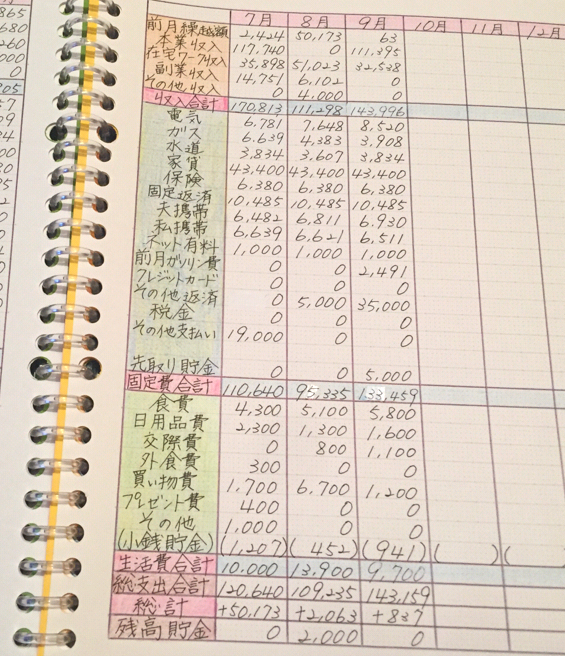 865
680
260
000
0
805
57
09
84
00
80
95
7月 8月 9月 10月 11月 12月
前月繰越額 2,424 50,173 63
本業収入 117,740 0 111,395
在宅ワーク収入 35,898 51,023 32,538
副業収入 14,751 6,102 0
その他収入 0 4,000 0
収入合計 170,813 111,298 143,996
電気 6,781 7,648 8,520
ガス 6,639 4,383 3,908
水道 3,834 3,607 3,834
家賃 43,400 43,400 43,400
保険 6,380 6,380 6,380
固定返済 10,485 10,485 10,485
夫携帯 6,482 6,811 6,930
私携帯 6,639 6,621 6,511
ネット有料 1,000 1,000 1,000
前月ガソリン費 0 0 2,491
クレジットカード 0 0 0
その他返済 0 5,000 35,000
税金 0 0 0
その他支払い 19,000 0 0
先取り貯金 0 0 5,000
固定費合計 110,640 95,335 133,459
食費 4,300 5,100 5,800
日用品費 2,300 1,300 1,600
交際費 0 800 1,100
外食費 300 0 0
買い物費 1,700 6,700 1,200
プレゼント費 400 0 0
その他 1,000 0 0
(小銭貯金) (1,207) (452) (941) ( ) (
生活費合計 10,000 13,900 9,700
総支出合計 120,640 109,235 143,159
総計 +50,173 +2,063 +837
残高貯金 0 2,000 0